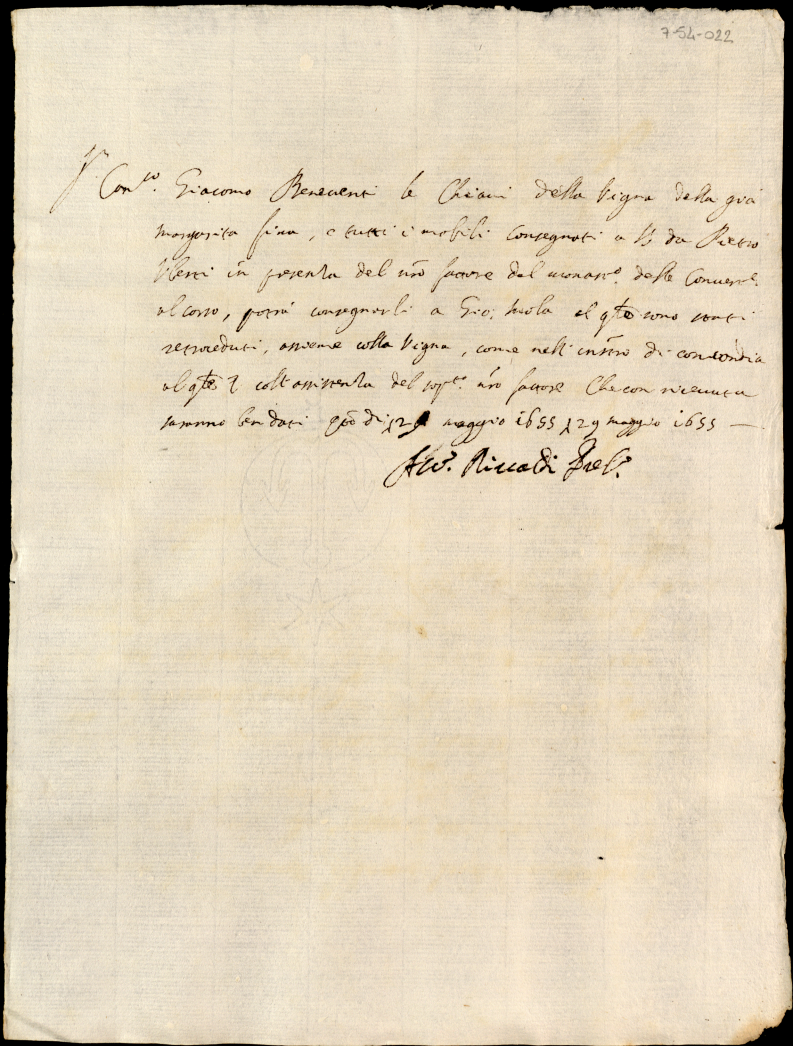 7-54-022
Giacomo Beneventi le Chiavi della Vigna della già
Margarita fina, e tutti i mobili consegnati a da Pietro
in presenza del nro fattore del monasro. delle Convertte.
al corso, potrà consegnarli a Gio: Mola al qle sono stati
retroceduti, assieme colla Vigna, come nell' instro di concordia
al qle coll'assistenza del sopto. nro fattore Che con ricevuta
saranno ben dati qto dì 29 maggio 1655 29 maggio 1655 —
Riccardi